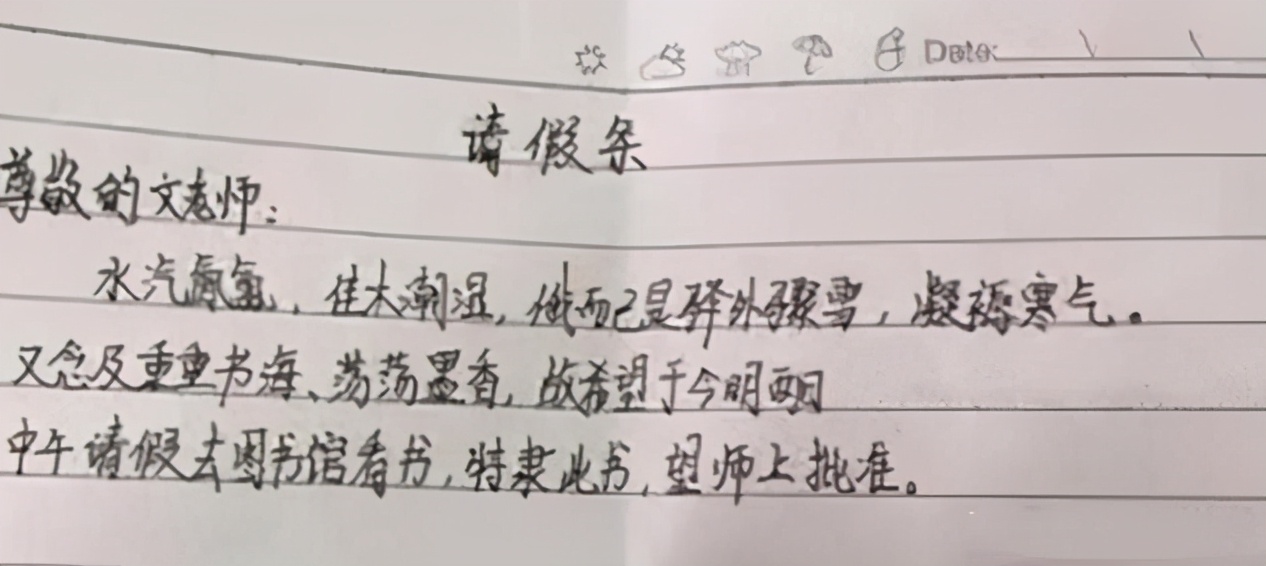 Date:
请假条
尊敬的文老师:
水汽氤氲,佳木潮湿,俄而已是驿外骤雪,凝褥寒气。
又念及重重书海、荡荡墨香,故希望于今明两日
中午请假去图书馆看书,特隶此书,望师上批准。